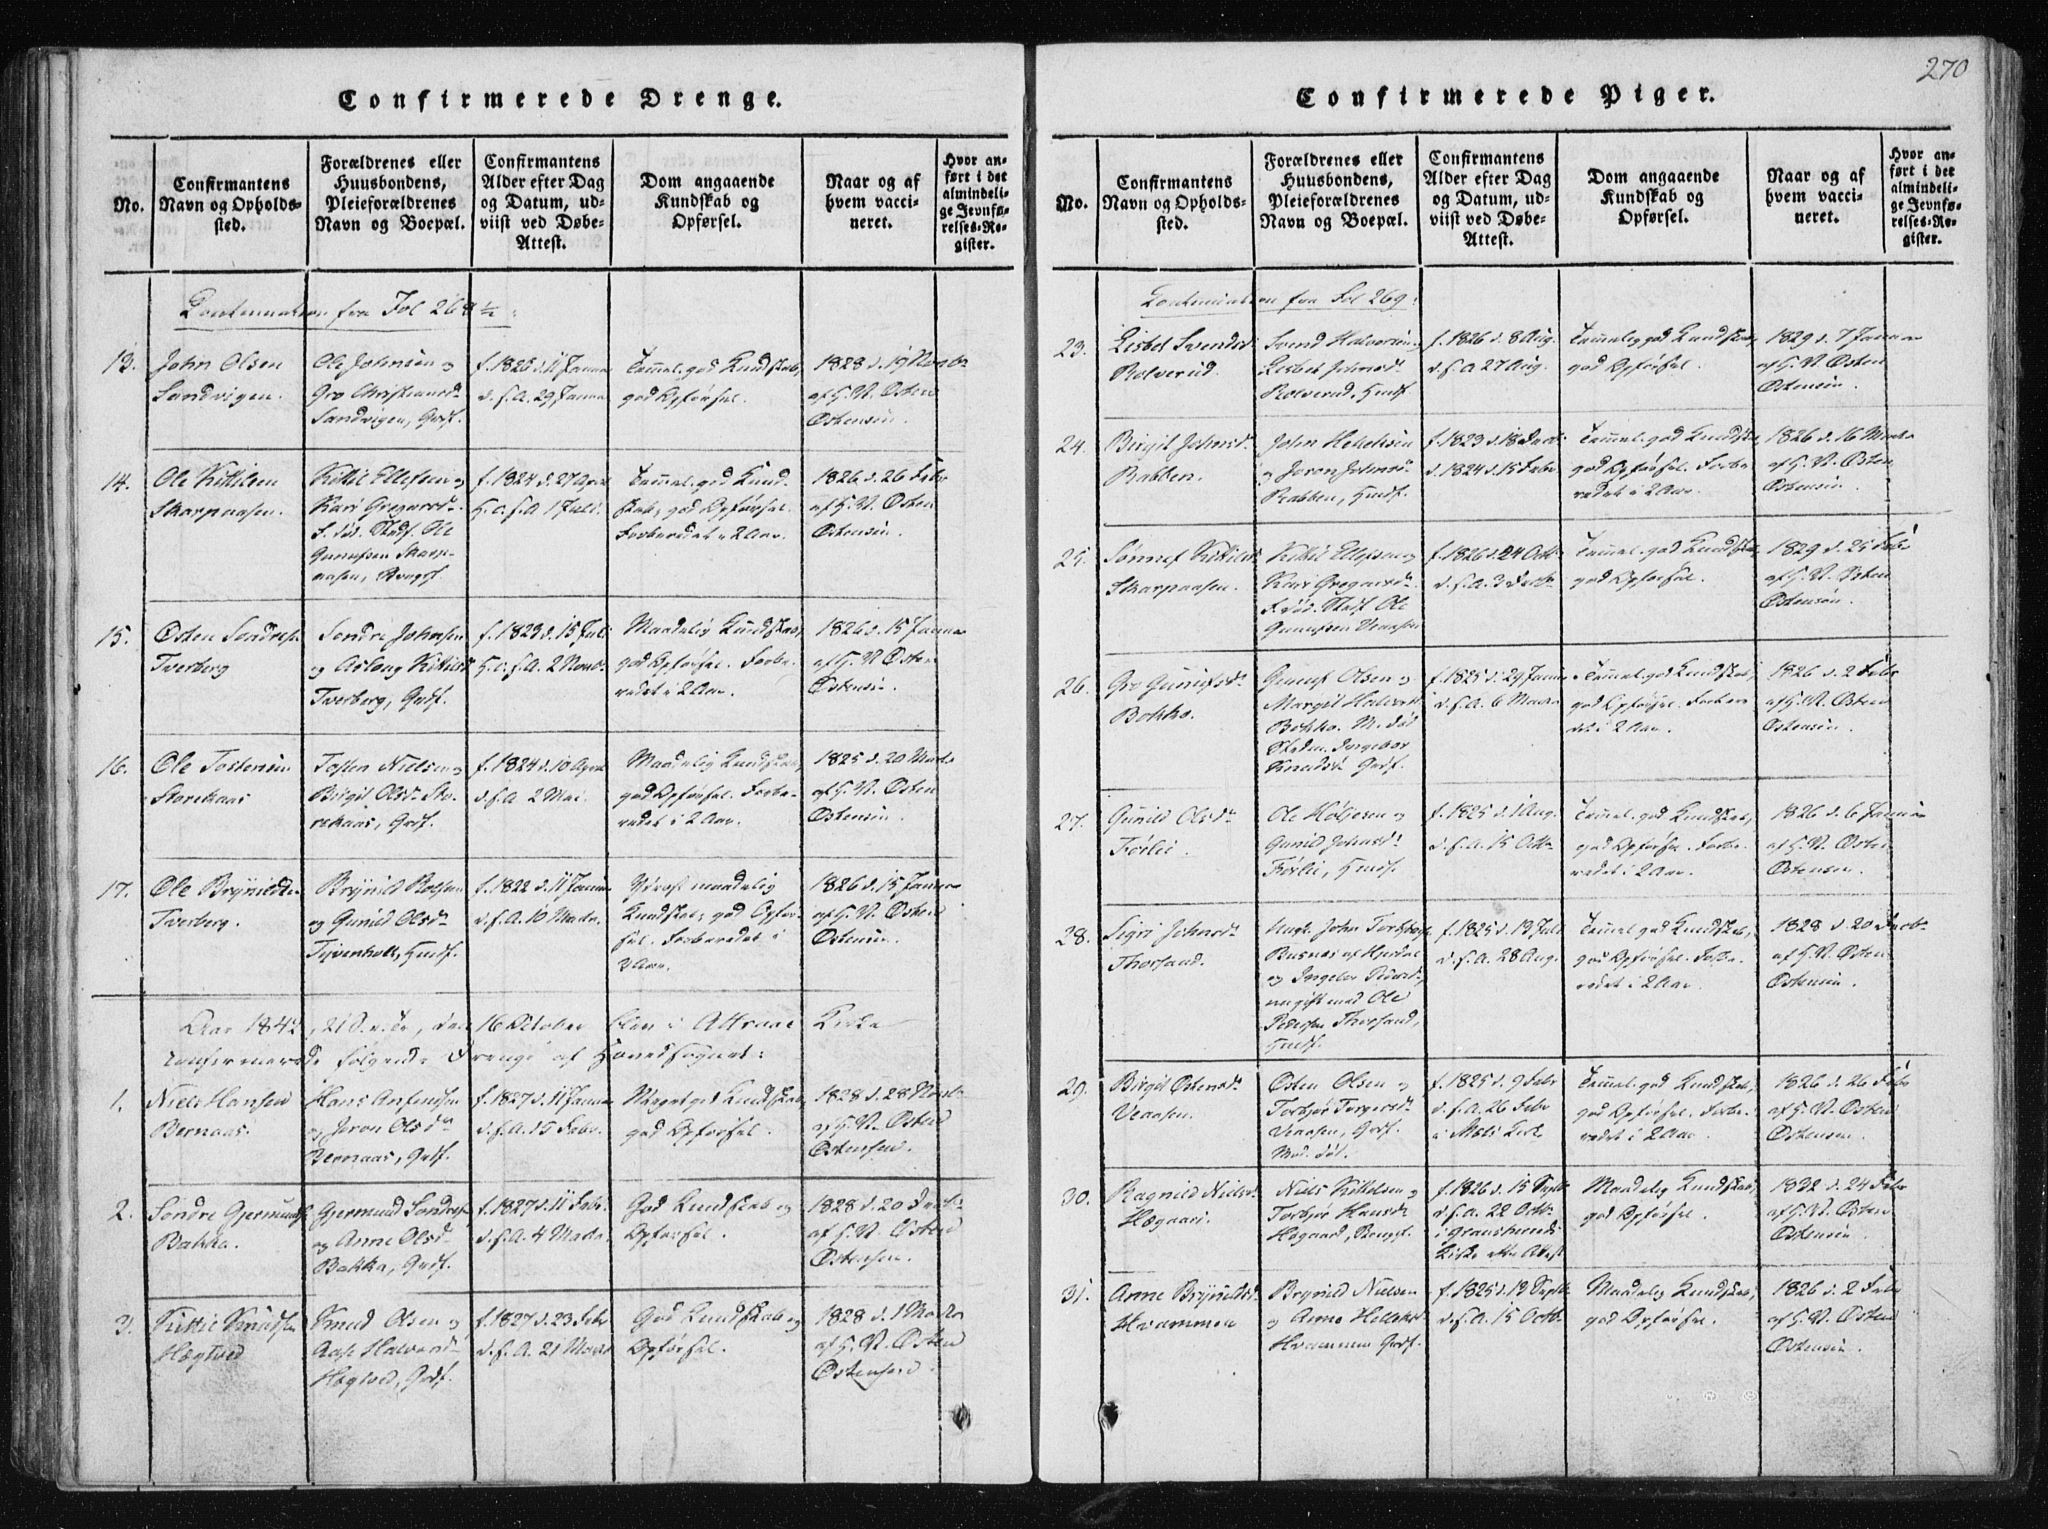 270
Confirmerede Drenge.
No.
Confirmantens
Navn og Opholds-
sted.
Forældrenes eller
Huusbondens,
Pleieforældrenes
Navn og Boepæl.
Confirmantens
Alder efter Dag
og Datum, ud-
viist ved Døbe-
Attest.
Dom angaaende
Kundskab og
Opførsel.
Naar og af
hvem vacci-
neret.
Hvor an-
ført i det
almindeli-
ge Jevnfø-
relses-Re-
gister.
Continuation fra Fol
13.
John Olsen
Sandvigen.
Ole Johnsen og
Gro Christiansd.
Sandvigen, Grdf.
f. 1826 d. 11 Janua
d. s. A. 29 Janua
Tammel. god Kundskab,
god Opførsel.
1828 d. 19 Novbr
af H. N. Østen
Østensen.
14.
Ole Kittilsen
Skarpaasen.
Kittil Ellefsen og
Kari Gregarsd.
F. død. Stedf. Ole
Gunufsen Skarp-
aasen,
f. 1824 d. 27 Apri
H. c. s. A. 1 Juli.
Tammel. god Kund-
skab, god Opførsel.
Forberedet i 2 Aar.
1826 d. 26 Febr
af H. N. Østen
Østensen
15.
Østen Sondres.
Tverberg
Sondre Johnsen
og Asloug Kittilsd
Tverberg, Grdf.
f. 1823 d. 15 Juli
H. c. s. A. 2 Novb.
Maadelig Kundskab,
god Opførsel. Forbe-
redet i 2 Aar.
1826 d. 15 Janua
af H. N. Østen
Østensen
16.
Ole Tostensen
Storekaas
Tosten Nielsen og
Birgit Olsd. Sto-
rekaas, Grdf.
f. 1824 d. 10 April
d. s. A. 2 Mai.
Maadelig Kundskab,
god Opførsel. Forbe-
redet i 2 Aar.
1825 d. 20 Marts
af H. N. Østen
Østensen
17.
Ole Brynildsen
Tverberg.
Brynild Rolfsen
og Gunild Olsd.
Husf.
f. 1822 d. 11 Janua
d. s. A. 10 Marts.
Yderst maadelig
Kundskab, god Opfør-
sel. Forberedet i
3 Aar.
1826 d. 15 Janua
af H. N. Østen
Østensen.
Aar 1842, 21 S. e. Tr., den 16 October blev i Attraae Kirke
confirmerede følgende Drenge af Hovedsognet:
1.
Niels Hansen
Bernaas.
Hans Anfindsen
og Joron Olsd.
Bernaas, Grdf.
f. 1827 d. 11 Janua
d. s. A. 15 Febr.
Meget god Kundskab,
god Opførsel.
1828 d. 28 Novb.
af H. N. Østen
Østensen.
2.
Sondre Gjermunds.
Bakka.
Gjermund Sondres.
og Anne Olsd.
Bakka, Grdf.
f. 1827 d. 11 Febr.
d. s. A. 4 Marts.
God Kundskab og
Opførsel.
1828 d. 20 Decb.
af H. N. Østen
Østensen.
3.
Kittil Knudsen
Høgtved
Knud Olsen og
Aase Halvorsd.
Høgtved, Grdf.
f. 1827 d. 23 Febr
d. s. A. 21 Marts
God Kundskab og
Opførsel.
1828 d. 1 Marts
af H. N. Østen
Østensen.
Confirmerede Piger.
No.
Confirmantens
Navn og Opholds-
sted.
Forældrenes eller
Huusbondens,
Pleieforældrenes
Navn og Boepæl.
Confirmantens
Alder efter Dag
og Datum, ud-
viist ved Døbe-
Attest.
Dom angaaende
Kundskab og
Opførsel.
Naar og af
hvem vacci-
neret.
Hvor an-
ført i det
almindeli-
ge Jevnfø-
relses-Re-
gister.
Continuation fra Fol 269:
23.
Lisbet Svendsd.
Rolverud.
Svend Halvorsen og
Lisbet Johnsd.
Rolverud, Husf.
f. 1826 d. 8 Aug.
d. s. A. 27 Aug.
Tammel. god Kundskab,
god Opførsel.
1829 d. 7 Janua
af H. N. Østen
Østensen.
24.
Birgit Johnsd.
Rabben.
John Helleksen
og Joron Johnsd.
Rabben, Husf.
f. 1823 d. 18 Decb.
d. 1824 d. 15 Febr.
Tammel. god Kundskab,
god Opførsel. Forbe-
redet i 2 Aar.
1826 d. 16 Marts
af H. N. Østen
Østensen
25.
Sønnef Kittilsd.
Skarpaasen.
Kittil Ellefsen og
Kari Gregarsd.
F. død. Stedf. Ole
Gunufsen
f. 1826 d. 24 Octb.
d. s. A. 3 Decb.
Tammel. god Kundskab,
god Opførsel.
1829 d. 25 Feb
af H. N. Østen
Østensen.
26.
Gro Gunufsd.
Bokko.
Gunuf Olsen og
Margit Halvorsd.
Bokko. M. død
Stedm. Ingebor
Knudsd. Grdf.
f. 1825 d. 29 Janua
d. s. A. 6 Marts
Tammel. god Kundskab,
god Opførsel. Forbere-
det i 2 Aar.
1826 d. 2 Febr
af H. N. Østen
Østensen
27.
Gunild Olsd.
Førlie.
Ole Høljesen og
Gunild Johnsd.
Førlie, Husf.
f. 1825 d. 1 Aug.
d. s. A. 15 Octb.
Tammel. god Kundskab,
god Opførsel. Forbe-
redet i 2 Aar.
1826 d. 6 Janua
af H. N. Østen
Østensen
28.
Sigri Johnsd.
Thorsand.
Ungk. John
af Hjerdal
og Ingebor
nu gift med Ole
Pedersen Thorsand,
Husf.
f. 1825 d. 13 Juli
d. s. A. 28 Aug.
Tammel. god Kundskab,
god Opførsel. Forbe-
redet i 2 Aar.
1828 d. 20 Decb.
af H. N. Østen
Østensen.
29.
Birgit Østensd.
Veaasen.
Østen Olsen og
Torbjør Torgersd.
Veaasen, Grdf.
Mod. død.
f. 1825 d. 9 Febr
d. s. A. 26 Febr
i Møls Kirk.
Tammel. god Kundskab,
god Opførsel. Forbe-
redet i 2 Aar.
1826 d. 26 Febr
af H. N. Østen
Østensen
30.
Ragnild Nielsd.
Høgaard.
Niels Kittelsen og
Torbjør Hansd.
Høgaard,
f. 1826 d. 15 Septb
d. s. A. 22 Octb.
i Gransherreds
Kirke efter Attest
Maadelig Kundskab,
god Opførsel.
1832 d. 24 Febr
af H. N. Østen
Østensen
31.
Anne Brynildsd.
Hvammen
Brynild Nielsen
og Anne Helleksd.
Hvammen Grdf.
f. 1825 d. 19 Septb.
d. s. A. 15 Octb.
Maadelig Kundskab,
god Opførsel.
1826 d. 2 Febr
af H. N. Østen
Østensen.